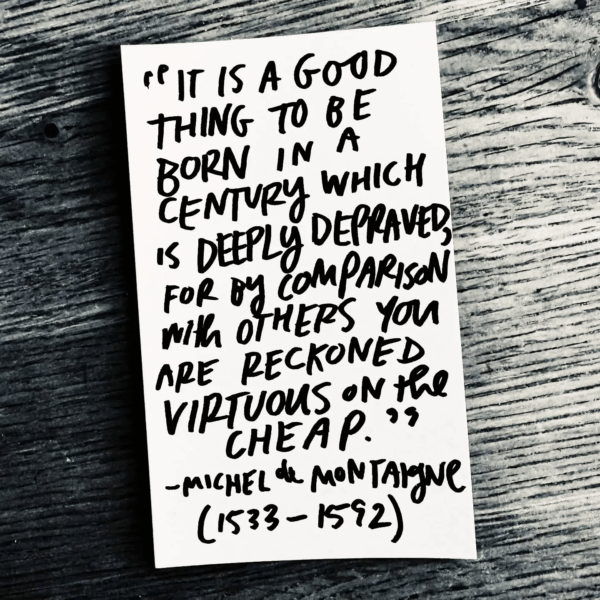 "IT IS A GOOD
THING TO BE
BORN IN A
CENTURY WHICH
IS DEEPLY DEPRAVED,
FOR BY COMPARISON
with OTHERS YOU
ARE RECKONED
VIRTUOUS ON the
CHEAP."
-MICHEL de MONTAIGNE
(1533-1592)